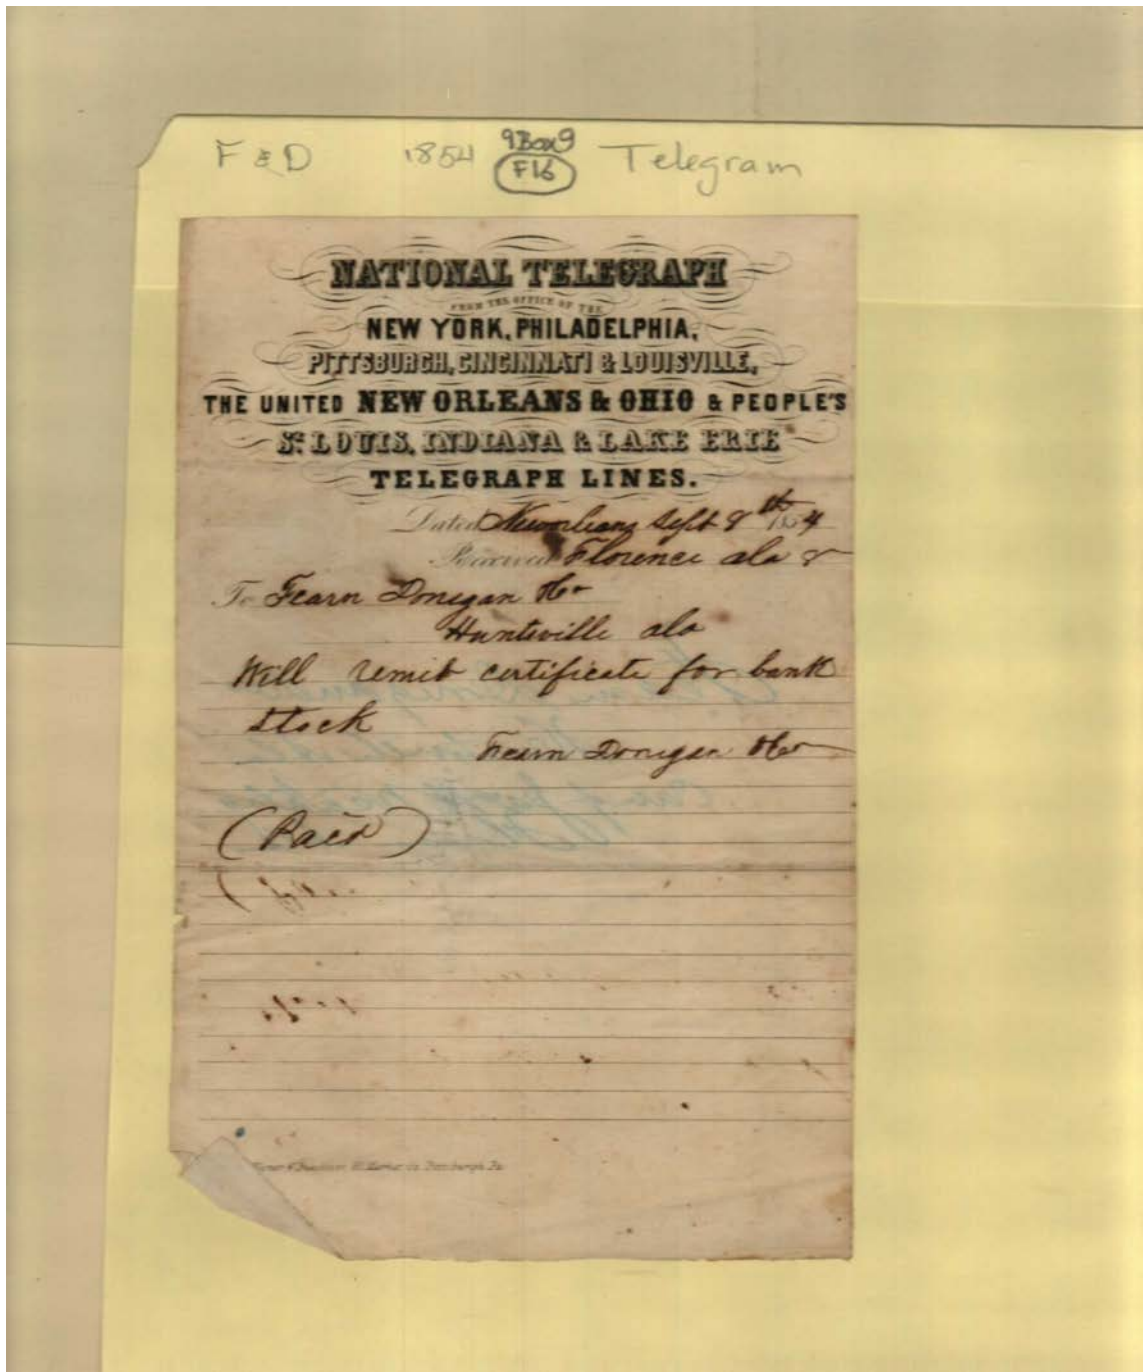 F & D 1854 9Box9 Telegram
F16
NATIONAL TELEGRAPH
FROM THE OFFICE OF THE
NEW YORK, PHILADELPHIA,
PITTSBURGH, CINCINNATI & LOUISVILLE,
THE UNITED NEW ORLEANS & OHIO & PEOPLE'S
ST LOUIS, INDIANA & LAKE ERIE
TELEGRAPH LINES.
Dated Neworleans Sept 8th 1854
Received Florence ala 8
To Fearn Donegan & Co
Huntsville ala
Will remit certificate for bank
stock
Fearn Donegan & Co
(Paid)
Market St. Pittsburgh, Pa.